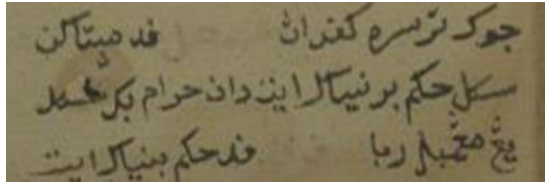 جوک ترسره کفدان فد مپتاکن
سکل حکم برنياک ايت دان حرام بکي سکل
يڠ مڠمبل ربا فد حکم بنياک ايت